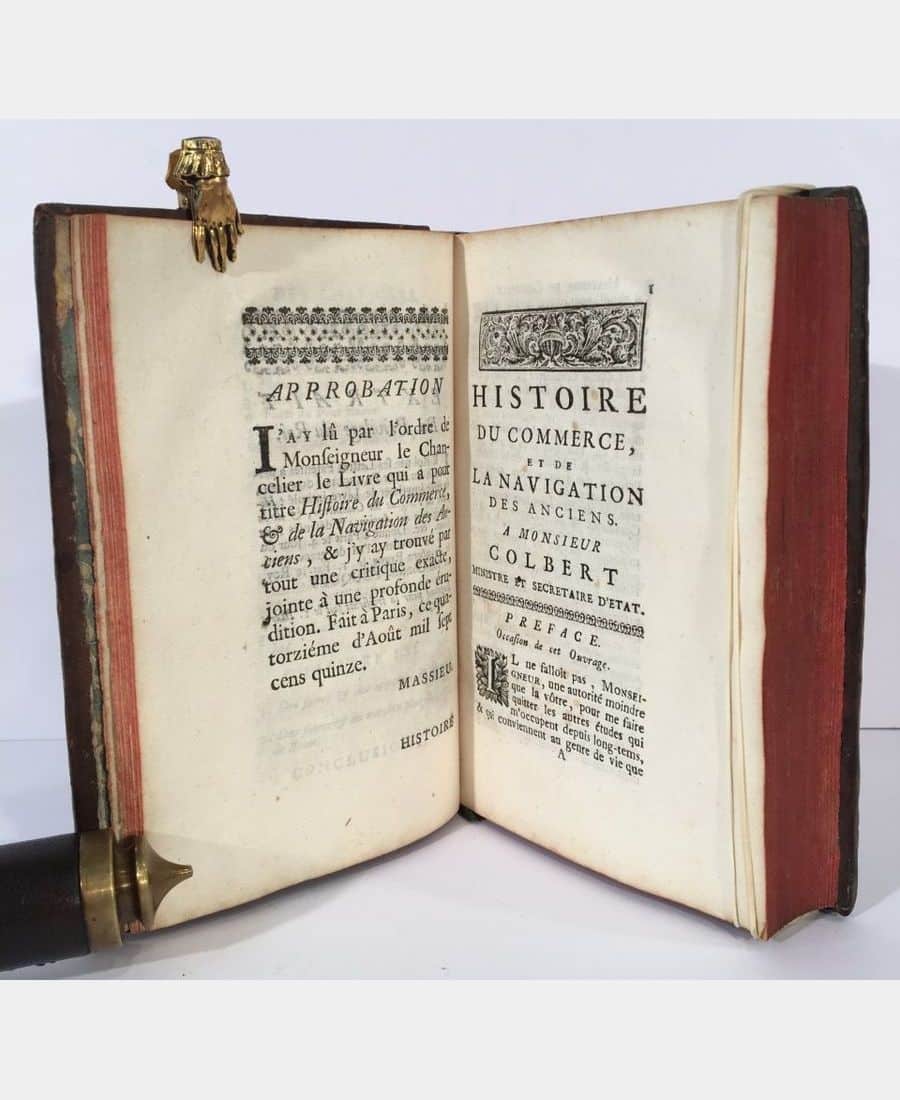 APPROBATION
J'AY lû par l'ordre de
Monſeigneur le Chan-
celier le Livre qui a pour
titre Hiſtoire du Commerce,
& de la Navigation des An-
ciens, & j'y ay trouvé par
tout une critique exacte,
jointe à une profonde éru-
dition. Fait à Paris, ce qua-
torziéme d'Août mil ſept
cens quinze.
MASSIEU.
HISTOIRE
1
HISTOIRE
DU COMMERCE,
ET DE
LA NAVIGATION
DES ANCIENS.
A MONSIEUR
COLBERT
MINISTRE ET SECRETAIRE D'ETAT.
PREFACE.
Occaſion de cet Ouvrage.
IL ne falloit pas, MONSEI-
GNEUR, une autorité moindre
que la vôtre, pour me faire
quitter les autres études qui
m'occupent depuis long-tems,
& qui conviennent au genre de vie que
A